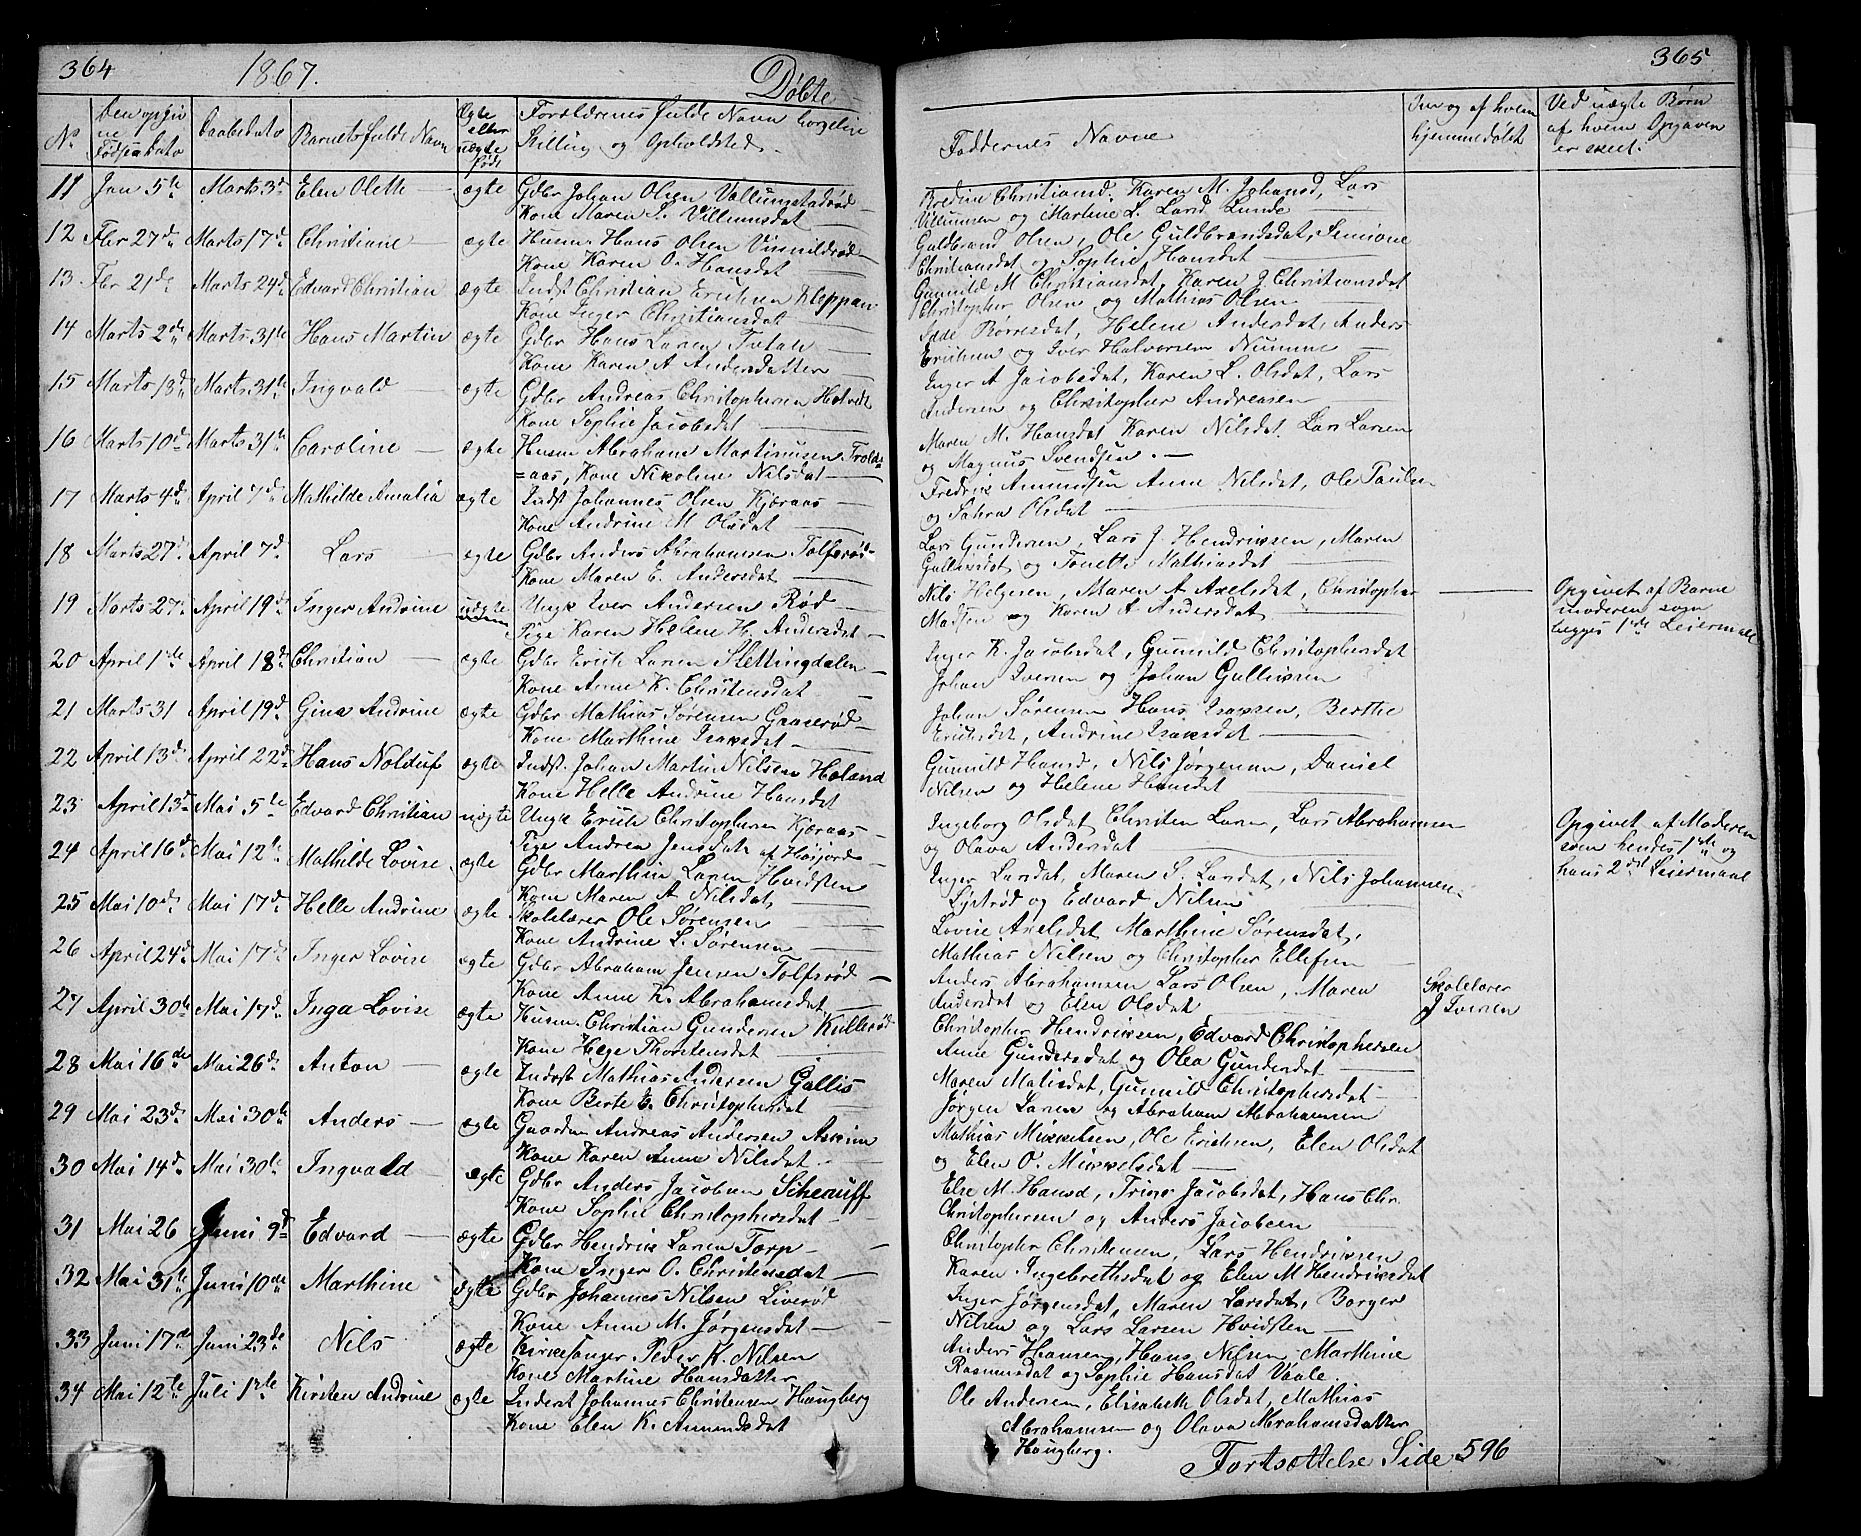 364 1867. Døbte
No Den opgivne Fødselsdato Daabsdato Barnets fulde Navn Ægte eller uægte født Forældrenes fulde Navn borgelige Stilling og Opholdsted
11 Jan 5te Marts 3d Elen Olette — ægte Gdbr Johan Olsen Vallumstadrød —
Kone Maren S. Villumsdat —
12 Fbr 27de Marts 17d Christiane — ægte Husm. Hans Olsen Vinnildrød —
Kone Karen O. Hansdat —
13 Fbr 21de Marts 24d Edvard Christian ægte Indst Christian Erichsen Kleppan
Kone Inger Christiansdat —
14 Marts 2d Marts 31te Hans Martin ægte Gdbr Hans Larsen Tvetan —
Kone Karen A Andersdatter —
15 Marts 13d Marts 31te Ingvald — ægte Gdbr Andreas Christophersen Hotvedt
Kone Sophie Jacobsdat —
16 Marts 10d Marts 31te Caroline — ægte Husm Abraham Martinusen Trolds=
=aas, Kone Nikoline Nilsdat —
17 Marts 4d April 7d Mathilde Amalia ægte Indst Johannes Olsen Kjæraas —
Kone Andrine M Olsdat —
18 Marts 27d April 7d Lars — ægte Gdbr Anders Abrahamsen Tolfsrød —
Kone Maren E. Andersdat —
19 Marts 27d April 19d Inger Andrine uægte Ungk Iver Andersen Rød —
Pige Karen Helene H. Andersdat —
20 April 1ste April 18d Christian — ægte Gdbr Erich Larsen Slettingdalen
Kone Anne K. Christensdat —
21 Marts 31 April 19d Gina Andrine ægte Gdbr Mathias Sørensen Gaaserød —
Kone Marthine Isaksdat —
22 April 13d April 22d Hans Nolduf ægte Indst. Johan Martin Nilsen Holand
Kone Helle Andrine Hansdat
23 April 13d Mai 5te Edvard Christian uægte Ungk Erich Christophersen Kjæraas —
Pige Andrea Jensdat af Høijord —
24 April 16d Mai 12te Mathilde Lovise ægte Gdbr Marthin Larsen Hvidsten
Kone Maren A. Nilsdat —
25 Mai 10d Mai 17d Helle Andrine ægte Skolelærer Ole Sørensen —
Kone Andrine L. Sørensen —
26 April 24d Mai 17d Inger Lovise ægte Gdbr Abraham Jensen Tolfsrød —
Kone Anne K. Abrahamsdat —
27 April 30te Mai 19d Inga Lovise ægte Husm. Christian Gundersen Kullerød
Kone Hege Thorstensdat —
28 Mai 16de Mai 26d Anton — ægte Inderst Mathias Andersen Gallis
Kone Berte E. Christophersdat —
29 Mai 23d Mai 30te Anders — ægte Gaardm Andreas Andersen Askim
Kone Karen Anne Nilsdat —
30 Mai 14d Mai 30te Ingvald ægte Gdbr Anders Jacobsen Schauff
Kone Sophie Christophersdat —
31 Mai 26 Juni 9d Edvard — ægte Gdbr Hendrik Larsen Torp —
Kone Inger O. Christensdat —
32 Mai 31te Juni 10de Marthine ægte Gdbr Johannes Nilsen Liverød
Kone Anne M. Jørgensdat —
33 Juni 17d Juni 23de Nils ægte Kirkesanger Peder K. Nilsen
Kone Martine Hansdatter
34 Mai 12te Juli 1ste Kirsten Andrine ægte Inderst Johannes Christensen Haugberg
Kone Elen K. Amundsdat
365
Faddernes Navne Om og af hvem hjemmedøbt Ved uægte Børn af hvem Opgaven er skeet.
Bredine Christiansd. Karen M. Johansd, Lars
Villumsen og Martine L. Larsd Lunde —
Guldbrand Olsen, Ole Guldbrandsdat, Simione
Christiansdat og Sophie Hansdat —
Gunnild M Christiansdat, Karen J. Christiansdat
Christopher Olsen og Mathias Olsen
Børresdat, Helene Andersdat, Anders
Erichsen og Iver Halvorsen Numme —
Inger A Jacobsdat, Karen L. Olsdat, Lars
Andersen og Christopher Andreasen —
Maren M. Hansdat Karen Nilsdat. Lars Larsen
og Magnus Svendsen. —
Fredrik Amundsen Anne Nilsdat, Ole Paulsen
og Sahra Olsdat —
Lars Gundersen, Lars J. Hendriksen, Maren
Gulliksdat og Tonette Mathiasdat —
Nils Helgesen, Maren A Axelsdat, Christopher
Madsen og Karen A Andersdat — Opgivet af Barnemoderen som begges 1ste Leiermaal
Inger K. Jacobsdat, Gunnild Christophersdat
Johan Iversen og Johan Gulliksen
Johan Sørensen Hans Isaksen, Berthe
Erichsdat, Andrine Isaksdat —
Gunnild Hansd, Nils Jørgensen, Daniel
Nilsen og Helene Hansdat —
Ingeborg Olsdat, Christen Larsen, Lars Abrahamsen
og Olava Andersdat — Opgivet af Moderen som hendes 1ste og hans 2det Leiermaal
Inger Larsdat, Maren S. Larsdat, Nils Johannesen
Lystrød og Edvard Nilsen —
Lovise Axelsdat Marthine Sørensdat,
Mathias Nilsen og Christopher Ellefsen —
Anders Abrahamsen Lars Olsen, Maren
Andersdat og Elen Olsdat — Skolelærer J Iversen
Christopher Hendriksen, Edvard Christophersen
Anne Gundersdat og Olea Gundersdat —
Maren Matisdat, Gunnild Christophersdat —
Jørgen Larsen og Abraham Abrahamsen
Mathias Mikkelsen, Ole Erichsen, Elen Olsdat
og Elen O. Mikkelsdat —
Else M. Hansd, Trine Jacobsdat, Hans Chr.
Christophersen og Anders Jacobsen
Christopher Christensen, Lars Hendriksen
Karen Ingebrethsdat og Elen M Hendriksdat
Inger Jørgensdat, Maren Larsdat, Borger
Nilsen og Lars Larsen Hvidsten —
Anders Hansen, Hans Nilsen, Marthine
Rasmusdat og Sophie Hansdat Vaale.
Ole Andersen, Elisabeth Olsdat, Mathias
Abrahamsen og Olava Abrahamsdatter
Haugberg.
Fortsættelse Side 596